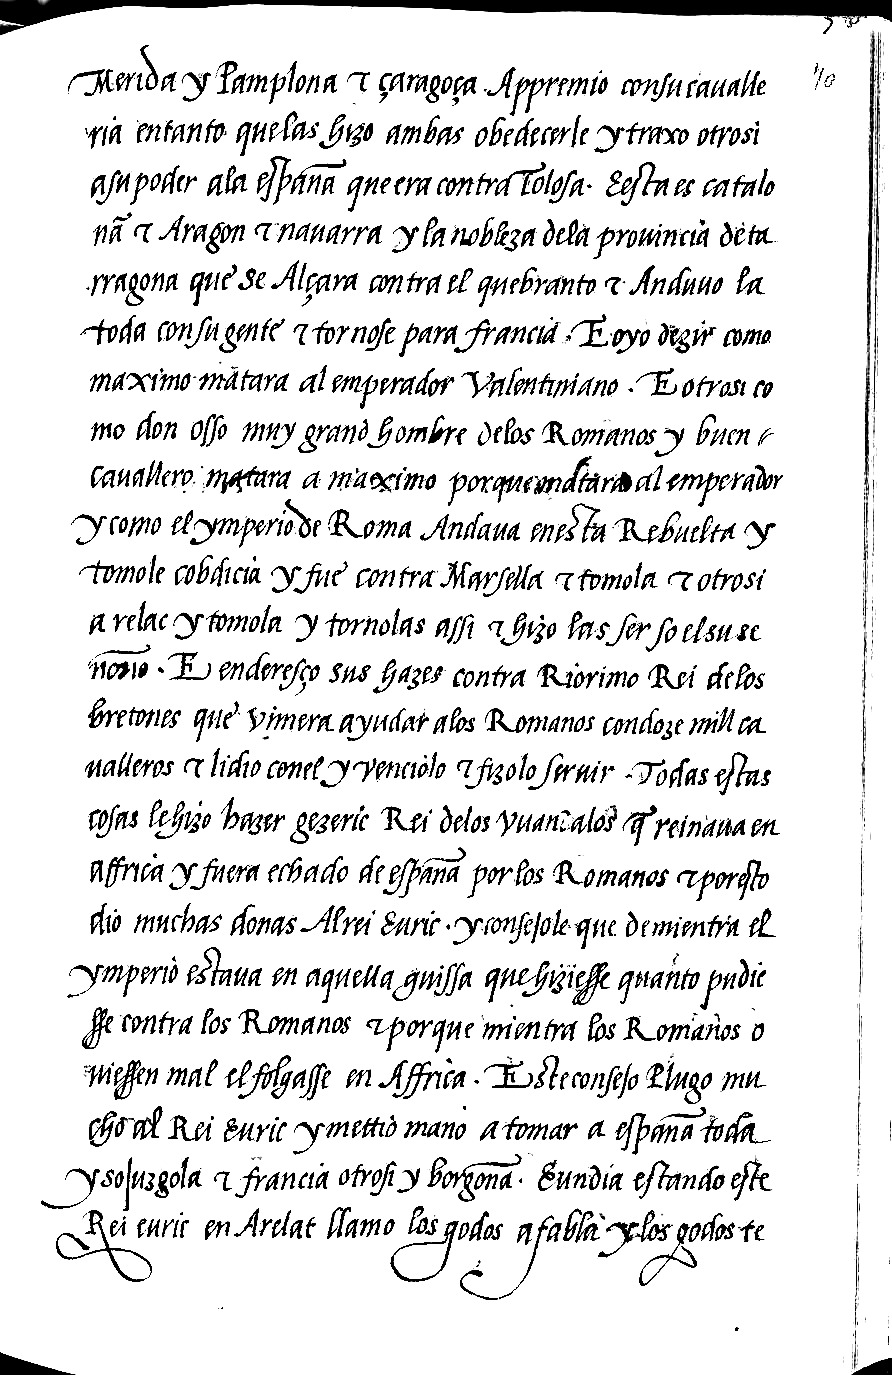 70
Merida y Pamplona τ çaragoça. Appremio consu caualle
ria entanto quelas hizo ambas obedecerle ytraxo otrosi
asupoder ala españa que era contra Tolosa. Eesta es catalo
nã τ Aragon τ nauarra y la nobleza dela prouincia deta
rragona que se Alçara contra el quebranto τ Anduuo la
toda consu gente τ tornose para francia. E oyo dezir como
maximo matara al emperador Valentiniano. E otrosi co
mo don Osso muy grand hombre delos Romanos y buen
cauallero matara a maximo porque matara al emperador
y como el ymperio de Roma Andaua enesta Rebuelta y
tomole cobdicia y fue contra Marsella τ tomola τ otrosi
a relac y tomola y tornolas assi τ hizo las ser so elsu se
norio. E enderesço sus hazes contra Riorimo Rei delos
bretones que vinera ayudar alos Romanos condoze mill ca
ualleros τ lidio conel y venciolo τ fizolo seruir. Todas estas
cosas lehizo hazer gezeric Rei delos vuandalos q̃ reinaua en
affrica y fuera echado de españa por los Romanos τ poresto
dio muchas donas Al rei Euric. y consejole que demientra el
ymperio estaua en aquella guissa que hiziesse quanto pudie
sse contra los Romanos τ porque mientra los Romanos o
uiessen mal el folgasse en Affrica. Este consejo Plugo mu
cho al Rei Euric y mettio mano a tomar a españa toda
y sojuzgola τ francia otrosi y borgoña. Eundia estando este
Rei euric en Arelat llamo los godos a fabla y los godos te